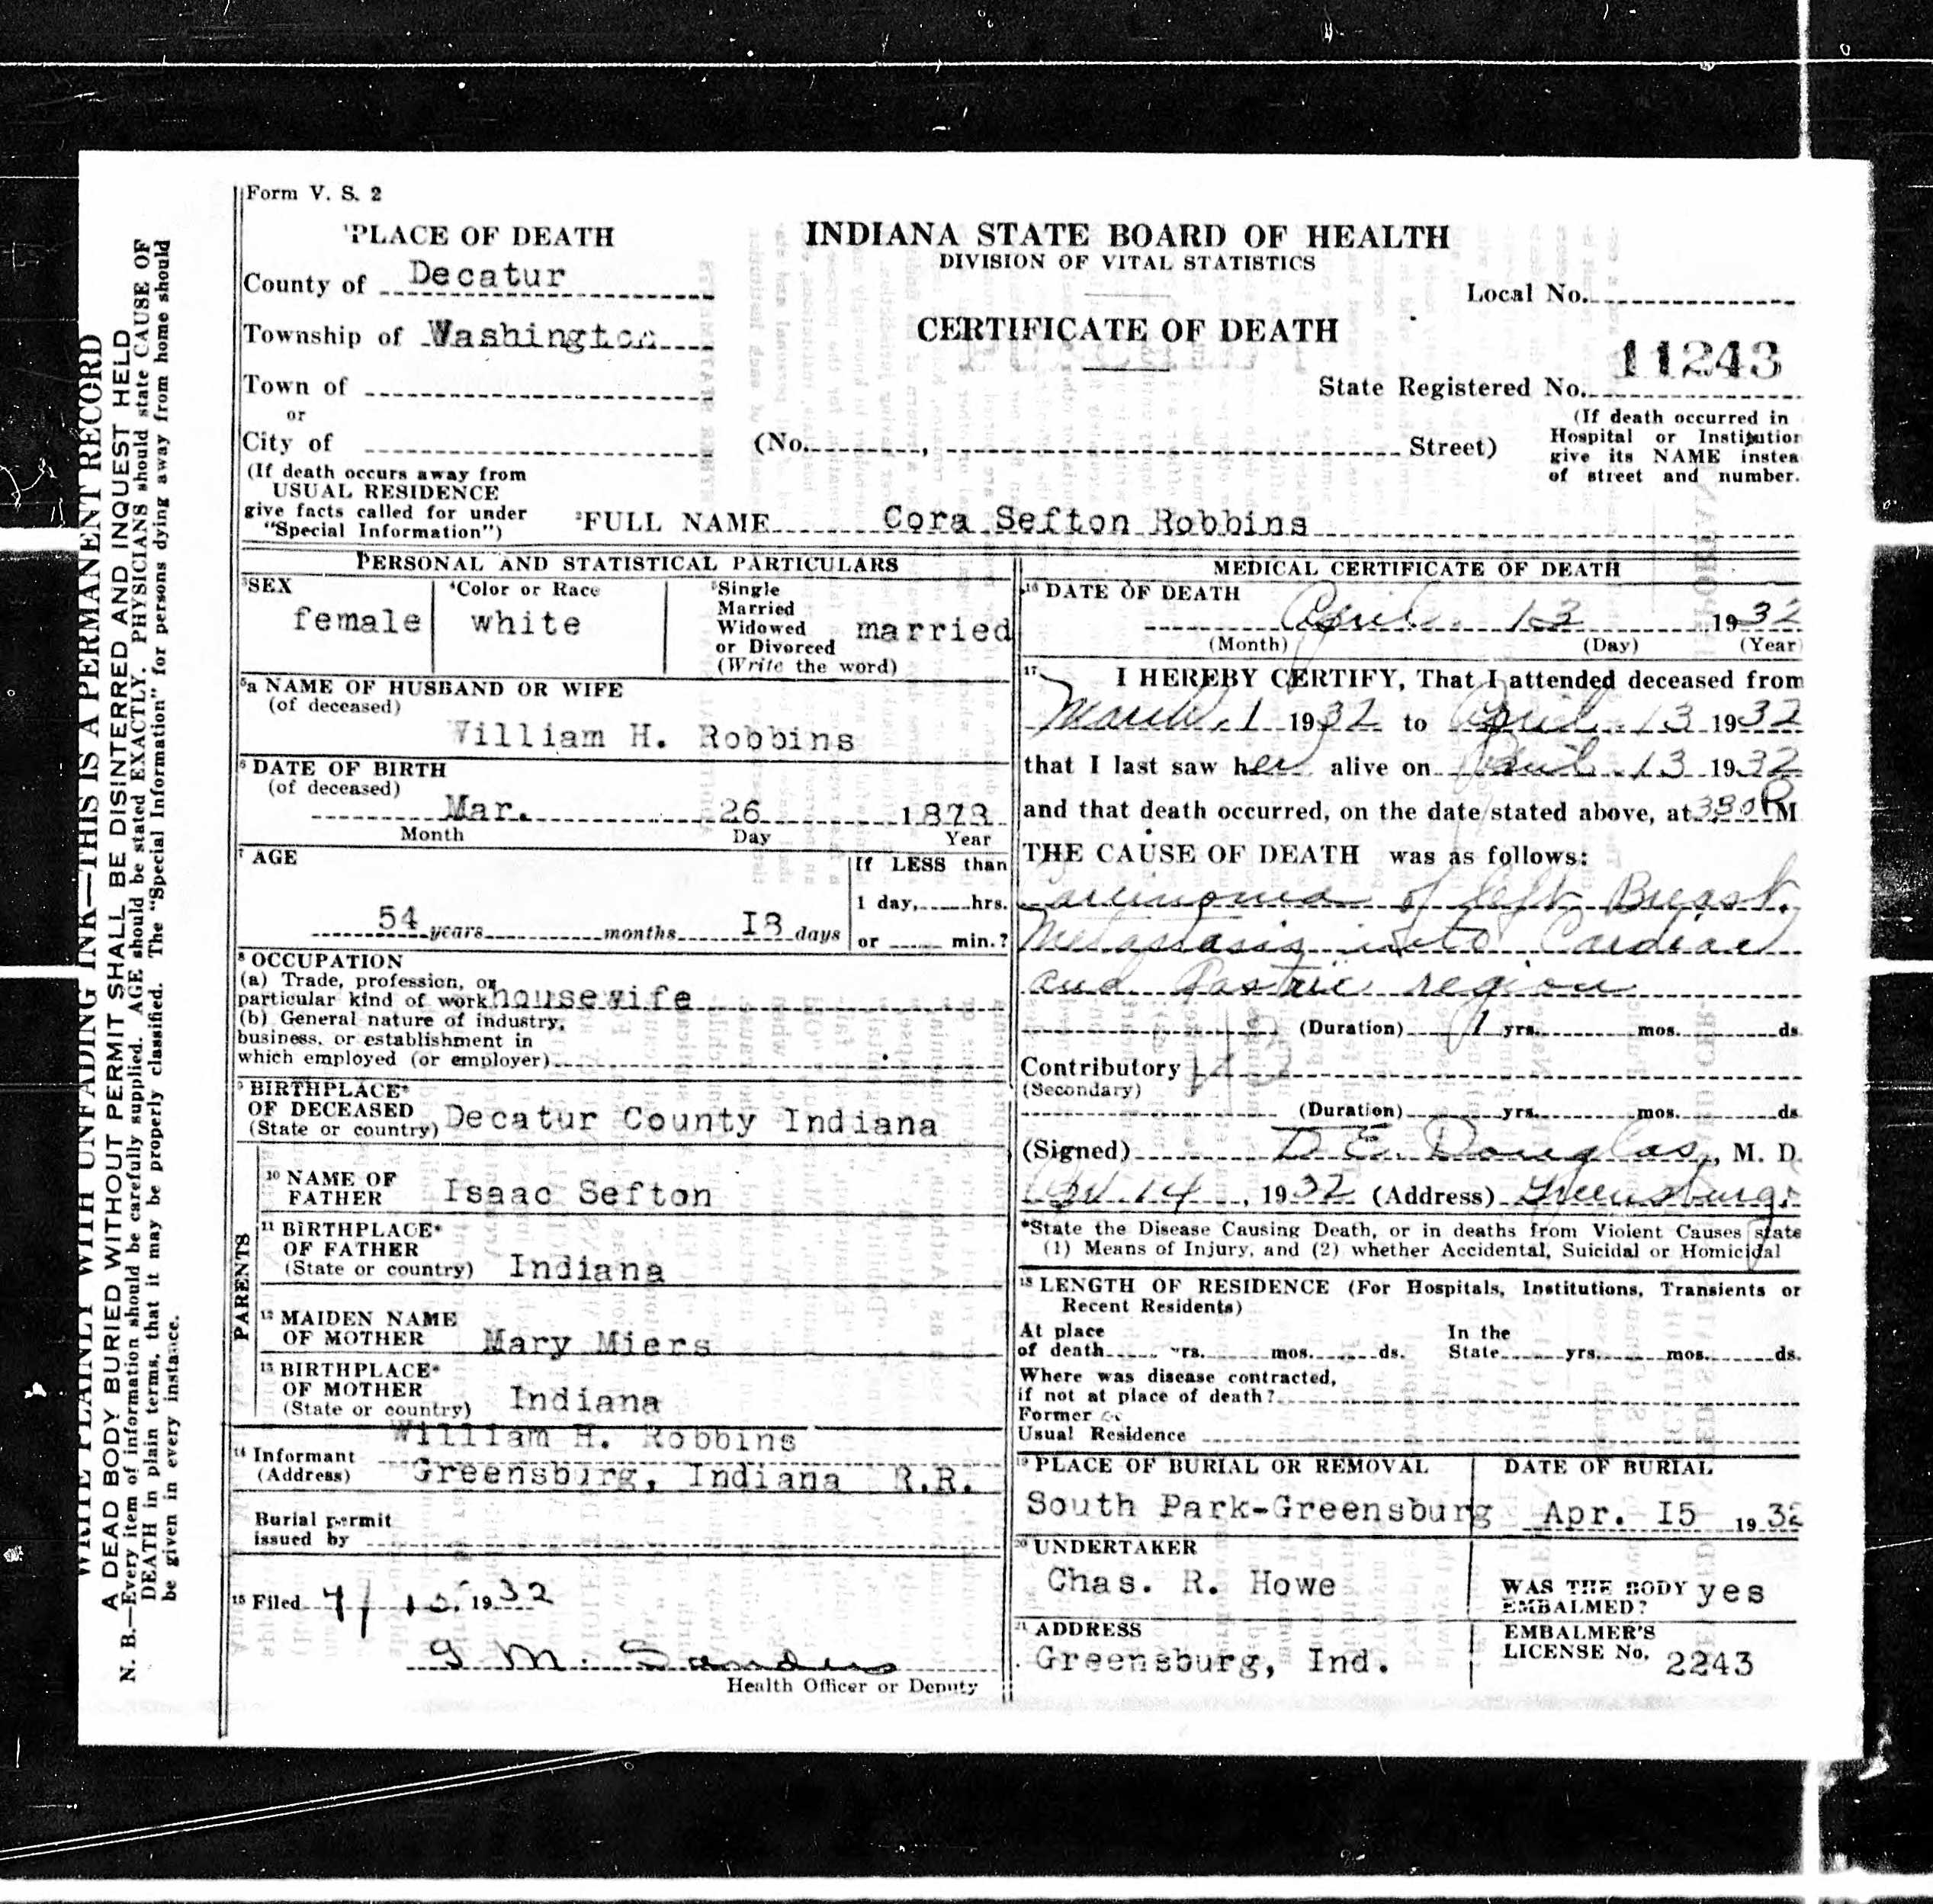 Form V. S. 2
¹PLACE OF DEATH
County of Decatur
Township of Washington
Town of
or
City of
(If death occurs away from
USUAL RESIDENCE
give facts called for under
"Special Information")
INDIANA STATE BOARD OF HEALTH
DIVISION OF VITAL STATISTICS
CERTIFICATE OF DEATH
Local No.
11243
State Registered No.
(No. , Street)
(If death occurred in
Hospital or Institution
give its NAME instea
of street and number.
²FULL NAME Cora Sefton Robbins
PERSONAL AND STATISTICAL PARTICULARS
³SEX
female
⁴Color or Race
white
⁵Single
Married
Widowed
or Divorced
(Write the word)
married
⁵a NAME OF HUSBAND OR WIFE
(of deceased)
William H. Robbins
⁶DATE OF BIRTH
(of deceased)
Mar. 26
Month Day Year
⁷AGE
54 years months I8 days
If LESS than
1 day, hrs.
or min.?
⁸OCCUPATION
(a) Trade, profession, or
particular kind of work housewife
(b) General nature of industry,
business, or establishment in
which employed (or employer)
⁹BIRTHPLACE*
OF DECEASED
(State or country) Decatur County Indiana
PARENTS
¹⁰NAME OF
FATHER Isaac Sefton
¹¹BIRTHPLACE*
OF FATHER
(State or country) Indiana
¹²MAIDEN NAME
OF MOTHER Mary Miers
¹³BIRTHPLACE*
OF MOTHER
(State or country) Indiana
William H. Robbins
¹⁴Informant
(Address) Greensburg, Indiana R.R.
Burial permit
issued by
¹⁵Filed 4/ 15. 1932
G M. Sanders
Health Officer or Deputy
MEDICAL CERTIFICATE OF DEATH
¹⁶DATE OF DEATH
April 13 1932
(Month) (Day) (Year)
¹⁷ I HEREBY CERTIFY, That I attended deceased from
March 1 1932 to April 13 1932
that I last saw her alive on April 13 1932
and that death occurred, on the date stated above, at 330 P M
THE CAUSE OF DEATH was as follows:
Carcinoma of left Breast.
Metastasis into Cardiac
and Gastric region
(Duration) 1 yrs. mos. ds
Contributory
(Secondary)
(Duration) yrs. mos. ds
(Signed) D. E. Douglas, M. D.
Apl 14, 1932 (Address) Greensburg.
*State the Disease Causing Death, or in deaths from Violent Causes state
(1) Means of Injury, and (2) whether Accidental, Suicidal or Homicidal
¹⁸LENGTH OF RESIDENCE (For Hospitals, Institutions, Transients or
Recent Residents)
At place
of death yrs. mos. ds.
In the
State yrs. mos. ds.
Where was disease contracted,
if not at place of death?
Former or
Usual Residence
¹⁹PLACE OF BURIAL OR REMOVAL
South Park-Greensburg
DATE OF BURIAL
Apr. I5 1932
²⁰UNDERTAKER
Chas. R. Howe
WAS THE BODY
EMBALMED? yes
²¹ADDRESS
Greensburg, Ind.
EMBALMER'S
LICENSE No. 2243
WRITE PLAINLY WITH UNFADING INK—THIS IS A PERMANENT RECORD
A DEAD BODY BURIED WITHOUT PERMIT SHALL BE DISINTERRED AND INQUEST HELD
N. B.—Every item of information should be carefully supplied. AGE should be stated EXACTLY. PHYSICIANS should state CAUSE OF
DEATH in plain terms, that it may be properly classified. The "Special Information" for persons dying away from home should
be given in every instance.